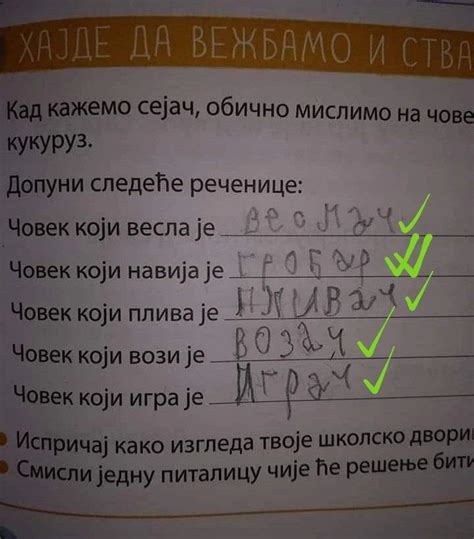 ХАЈДЕ ДА ВЕЖБАМО И СТВА
Кад кажемо сејач, обично мислимо на чове
кукуруз.
Допуни следеће реченице:
Човек који весла је веслач
Човек који навија је гробар
Човек који плива је пливач
Човек који вози је возач
Човек који игра је играч
Испричај како изгледа твоје школско двори
Смисли једну питалицу чије ће решење бити